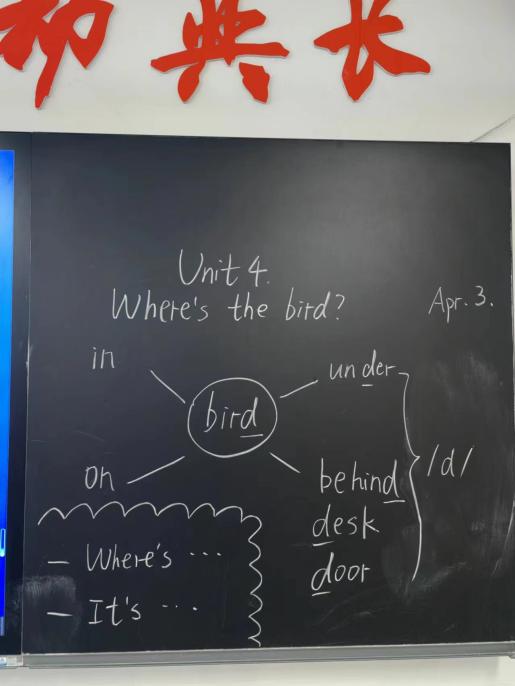 典长
Unit 4.
Where's the bird?
Apr. 3.
in
under
bird
on
behind
/d/
desk
door
— Where's ...
— It's ...